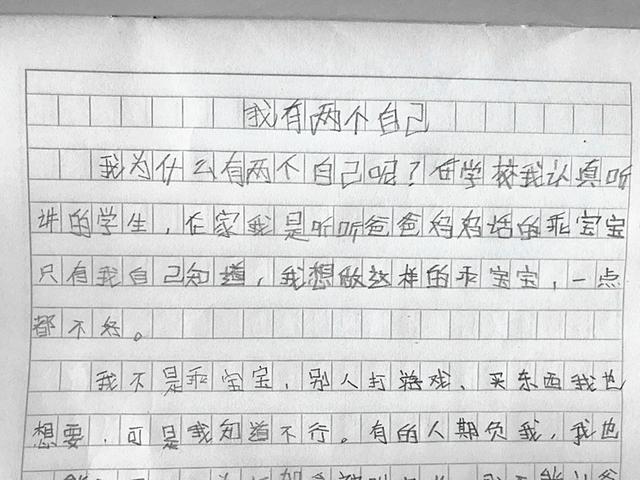 我有两个自己
我为什么有两个自己呢？在学校我认真听
讲的学生，在家我是听听爸爸妈妈话的乖宝宝
只有我自己知道，我想做这样的乖宝宝，一点
都不好。
我不是乖宝宝，别人打游戏、买东西我也
想要，可是我知道不行。有的人期负我，我也